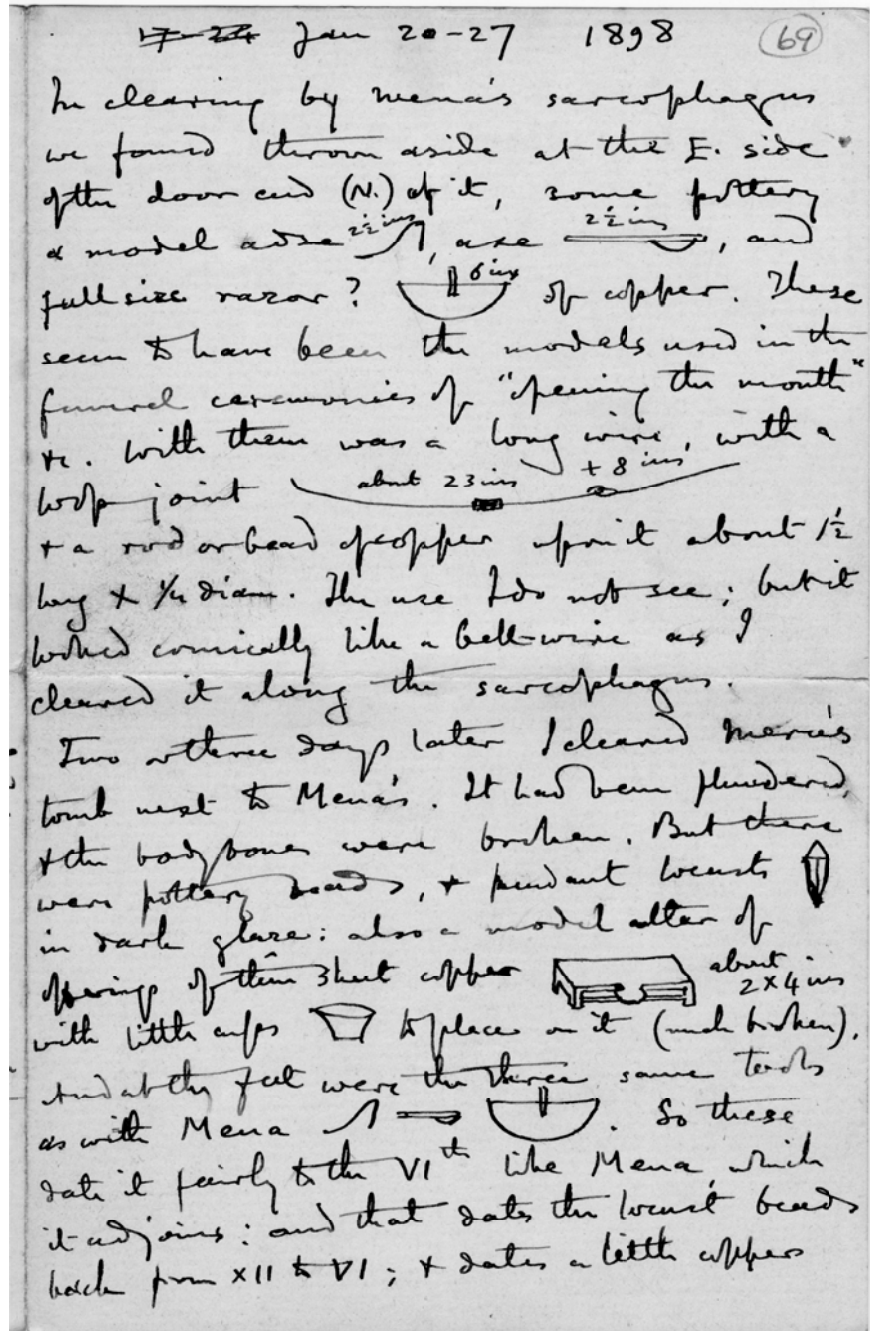 17-24 Jan 20-27 1898 69
In clearing by Mena's sarcophagus
we found thrown aside at the E. side
of the door end (N.) of it, some pottery
& model adse 2½ ins, axe 2½ ins, and
full size razor? 6 ins of copper. These
seem to have been the models used in the
funeral ceremonies of "opening the mouth"
&c. With them was a long wire, with a
loop joint about 23 ins + 8 ins
+ a rod or bead of copper upon it about 1½
long x ¼ diam. The use I do not see; but it
looked comically like a bell-wire as I
cleared it along the sarcophagus.
Two or three days later I cleared Meru's
tomb next to Mena's. It had been plundered,
& the body bones were broken. But there
were pottery beads, & pendant locusts
in dark glaze: also a model altar of
offerings of thin sheet copper about 2 x 4 ins
with little cups to place on it (much broken).
And at the feet were the three same tools
as with Mena. So these
date it fairly to the VIth like Mena which
it adjoins: and that dates the locust beads
back from XII to VI; & dates a little copper